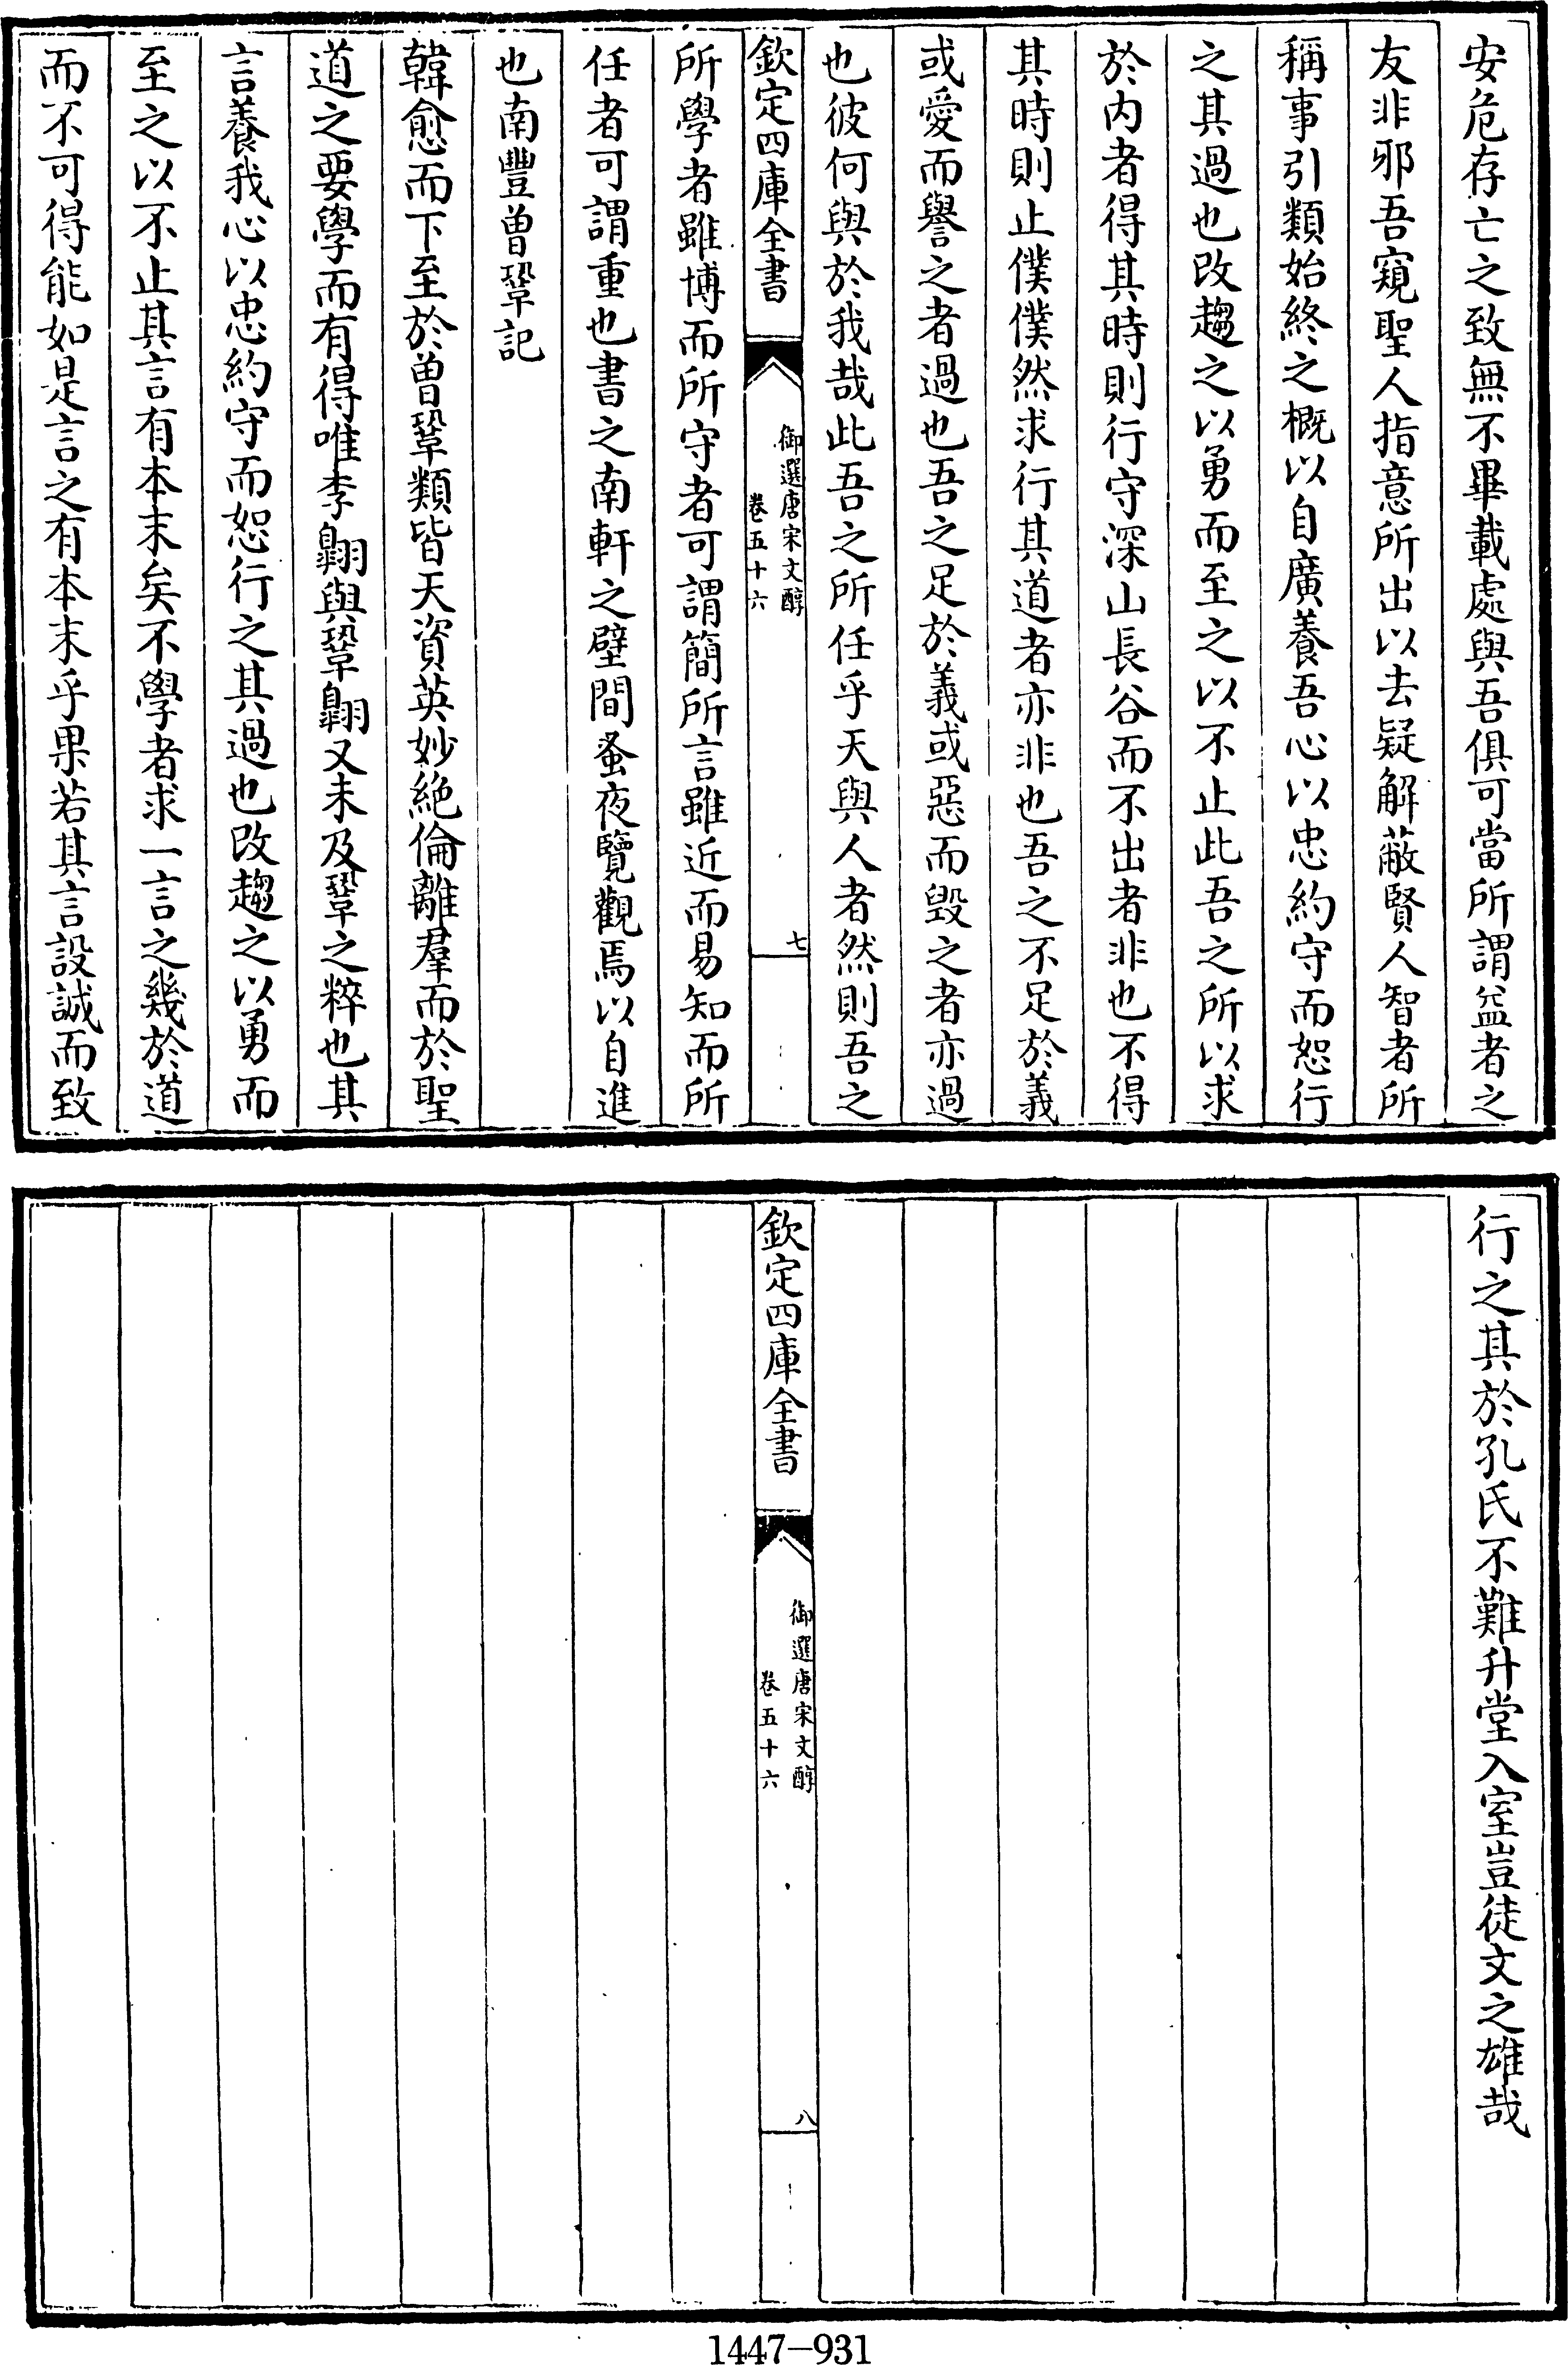 安危存亡之致無不畢載處與吾俱可當所謂益者之
友非邪吾窺聖人指意所出以去疑解蔽賢人智者所
稱事引類始終之概以自廣養吾心以忠約守而恕行
之其過也改趨之以勇而至之以不止此吾之所以求
於内者得其時則行守深山長谷而不出者非也不得
其時則止僕僕然求行其道者亦非也吾之不足於義
或愛而譽之者過也吾之足於義或惡而毀之者亦過
也彼何與於我哉此吾之所任乎天與人者然則吾之
欽定四庫全書
御選唐宋文醇
卷五十六
七
所學者雖博而所守者可謂簡所言雖近而易知而所
任者可謂重也書之南軒之壁間蚤夜覽觀焉以自進
也南豐曾鞏記
韓愈而下至於曾鞏類皆天資英妙絶倫離羣而於聖
道之要學而有得唯李翺與鞏翺又未及鞏之粹也其
言養我心以忠約守而恕行之其過也改趨之以勇而
至之以不止其言有本末矣不學者求一言之幾於道
而不可得能如是言之有本末乎果若其言設誠而致
行之其於孔氏不難升堂入室豈徒文之雄哉
欽定四庫全書
御選唐宋文醇
卷五十六
八
1447-931